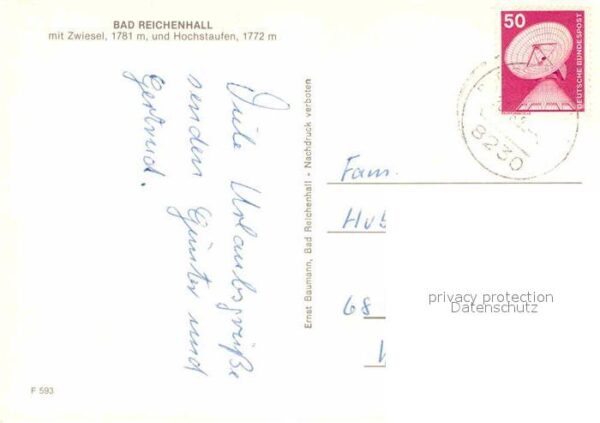 BAD REICHENHALL
mit Zwiesel, 1781 m, und Hochstaufen, 1772 m
Viele Urlaubsgrüße
senden Günter und
Gertrud.
F 593
Ernst Baumann, Bad Reichenhall - Nachdruck verboten
50
DEUTSCHE BUNDESPOST
8230
Fam.
Hub
68
privacy protection
Datenschutz